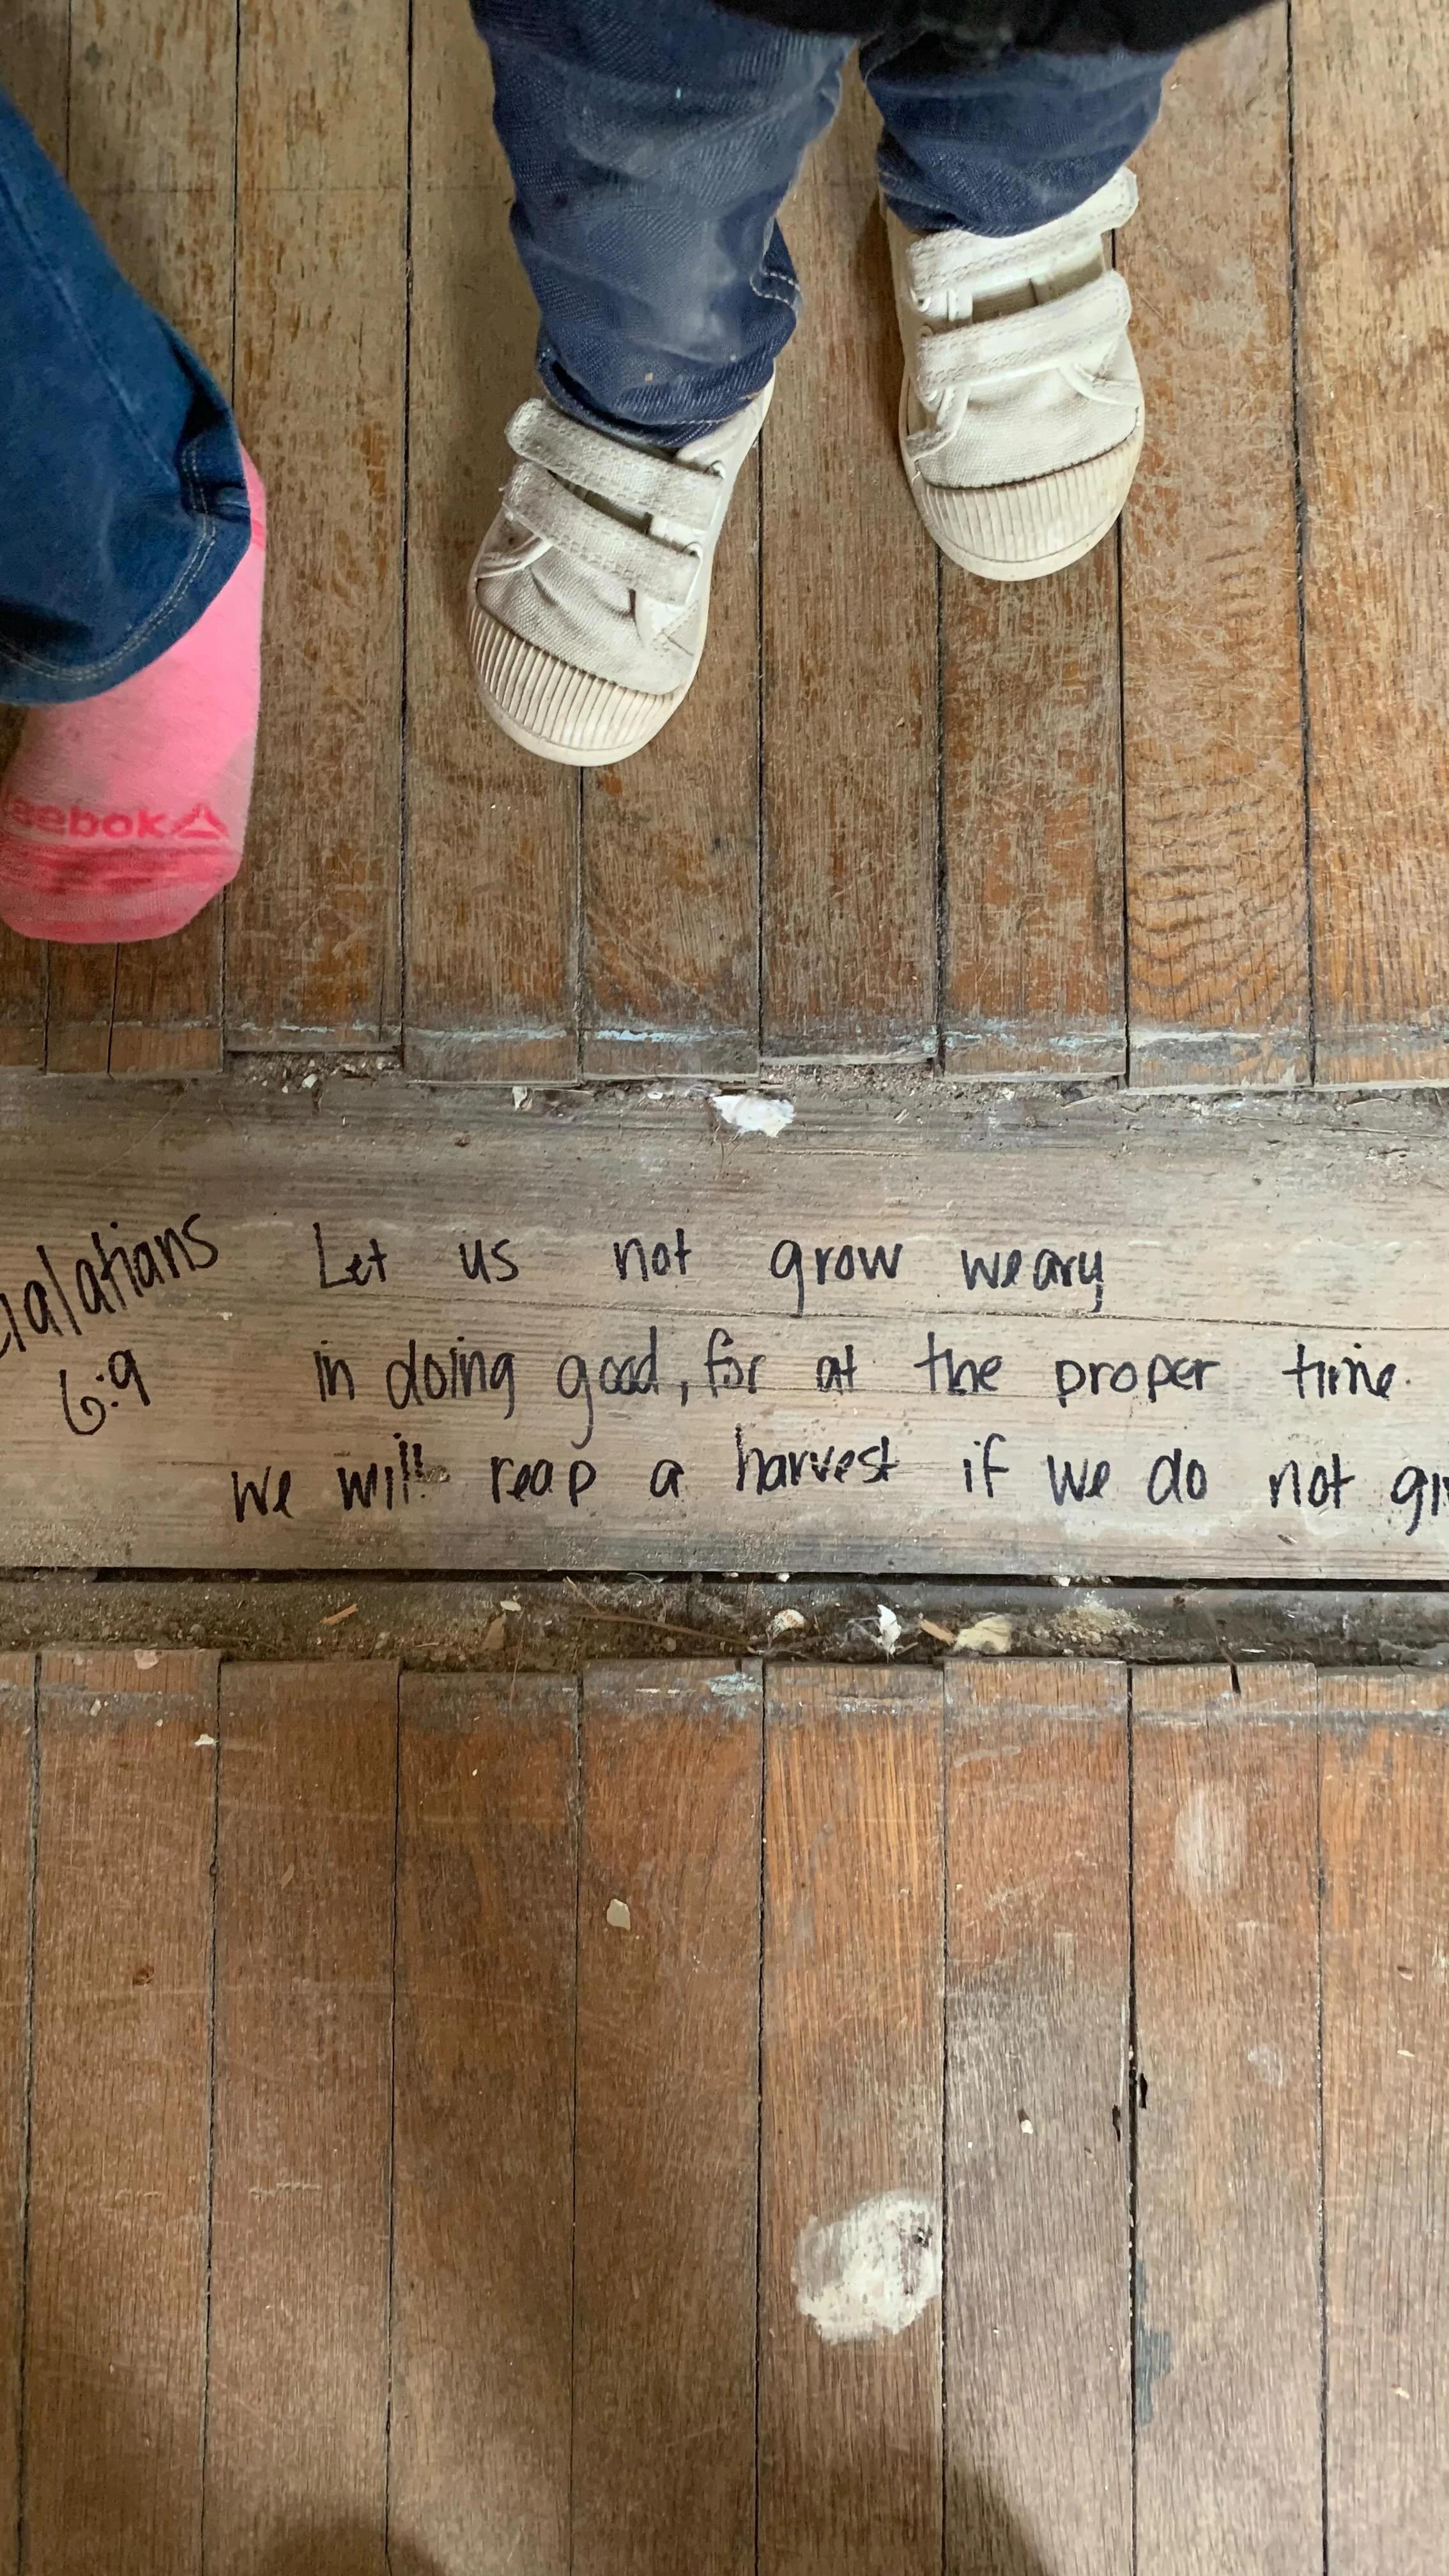 eebok
alatians
6:9
Let us not grow weary
in doing good, for at the proper time
we will reap a harvest if we do not gi